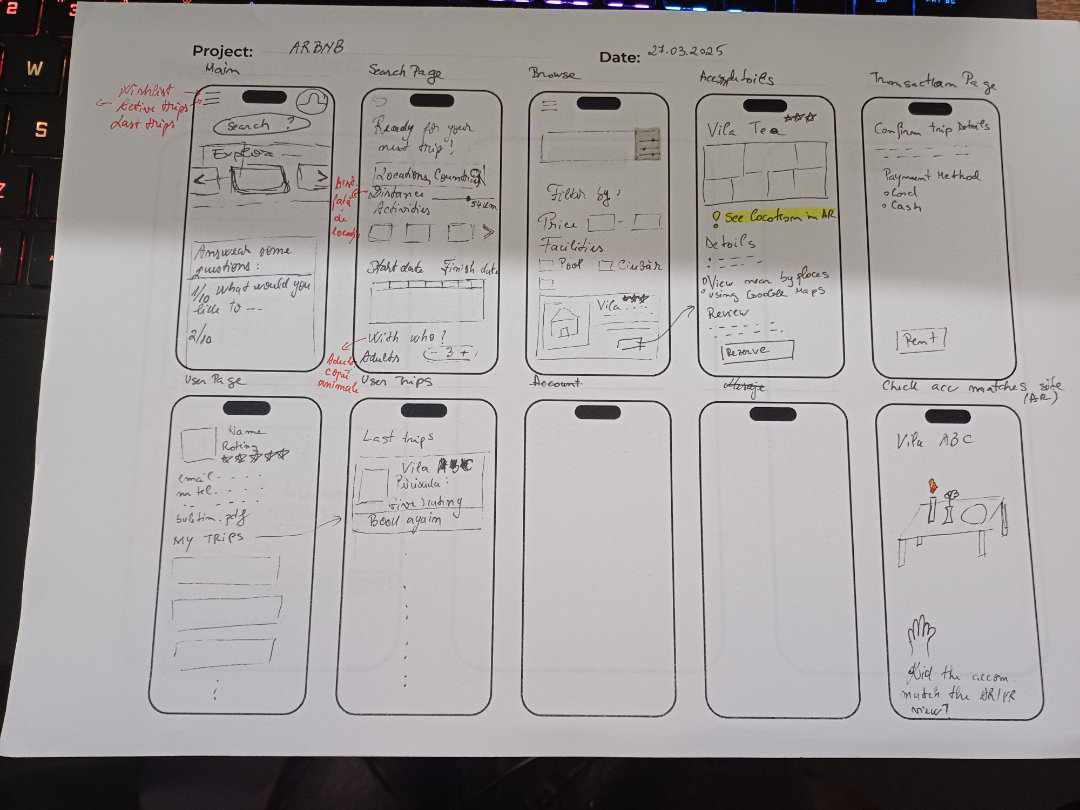 Project: ARBNB
Date: 27.03.2025
Main
Wishlist
Active trips
Last trips
Search ?
Explore
Answear some
questions:
1/10 What would you
like to ---
2/10
Search Page
Ready for your
new trip!
Locations, Countries
Distance
54 km
Activities
Start date Finish date
With who?
Adults - 3 +
până
de
Adulți
copii
animale
Browse
Filter by:
Price -
Facilities
Pool
Vila ***
Acc details
Vila Tea ***
See Location in AR
Details
View near by places
using Google Maps
Review
Rezerve
Transaction Page
Confirm trip Details
Payment Method
Card
Cash
Rent
User Page
Name
Rating
email
nr tel.
buletin.pdf
MY TRIPS
User Trips
Last trips
Vila ABC
Perioada:
Give rating
Book again
Account
Message
Check acc matches site
(AR)
Vila ABC
Did the accom
match the AR/VR
view?
W
S
Z